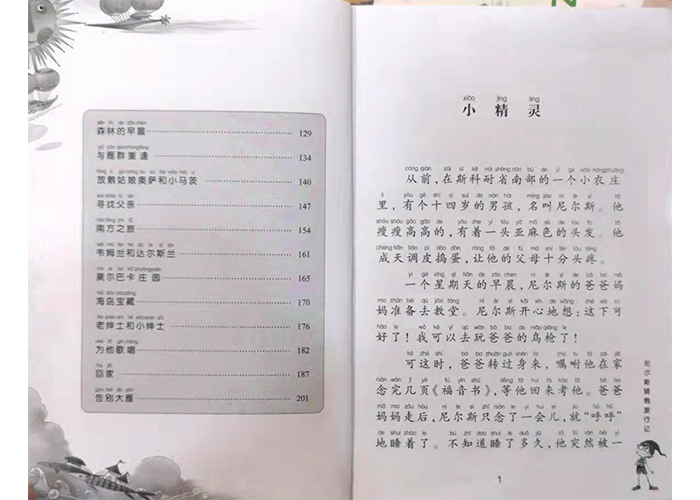 森林的早晨 129
与雁群重逢 134
放鹅姑娘奥萨和小马茨 140
寻找父亲 147
南方之旅 154
韦姆兰和达尔斯兰 161
莫尔巴卡庄园 165
海岛宝藏 170
老绅士和小绅士 176
为他歌唱 182
回家 187
告别大雁 201
xiǎo jīng líng
小精灵
从前,在斯科耐省南部的一个小农庄
里,有个十四岁的男孩,名叫尼尔斯。他
瘦瘦高高的,有着一头亚麻色的头发。他
成天调皮捣蛋,让他的父母十分头疼。
一个星期天的早晨,尼尔斯的爸爸妈
妈准备去教堂。尼尔斯开心地想:这下可
好了!我可以去玩爸爸的鸟枪了!
可这时,爸爸转过身来,嘱咐他在家
念完几页《福音书》,等他回来考他。爸爸
妈妈走后,尼尔斯只念了一会儿,就“呼呼”
地睡着了。不知道睡了多久,他突然被一
尼尔斯骑鹅旅行记
1